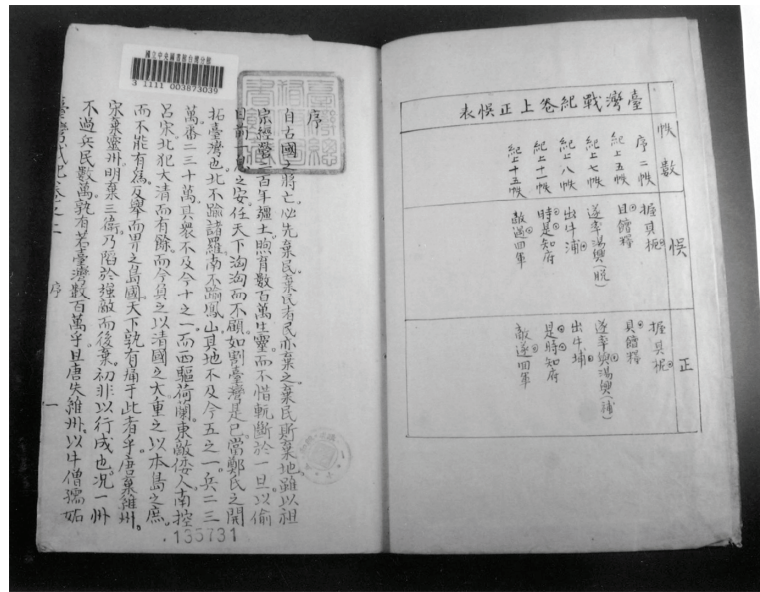 臺灣戰紀卷上正悞表
帙數
悞
正
序二帙
握其柅
握其柅
紀上五帙
目餽糧
具餽糧
紀上七帙
遂率湯興(脫)
遂率奥湯興(補)
紀上八帙
出牛浦
出牛埔
紀上十一帙
時是知府
是時知府
紀上十五帙
敵遂四軍
敵遂四軍
國立中央圖書館台灣分館
3 1111 003873039
臺灣總督府圖書
序
自古國之將亡必先棄民棄民者民亦棄之棄民斯棄地雖以祖
宗經營二百年疆土煦育數百萬生靈而不惜軏斷於一旦以偷
目前一息之安任天下洶洶而不顧如割臺灣是已當鄭氏之開
拓臺灣也北不踰諸羅南不踰鳳山其地不及今五之一兵二三
萬番二三十萬其眾不及今十之一而西驅荷蘭東敵倭人南控
呂宋北犯大清而有餘而今負之以清國之大重之以本島之庶
而不能有為反舉而畀之島國天下孰有痛于此者乎唐棄維州
宋棄靈州明棄三衛乃陷於強敵而後棄初非以行成也況一州
不過兵民數萬孰有若臺灣數百萬乎且唐失維州以牛僧孺妬
序
一
135731